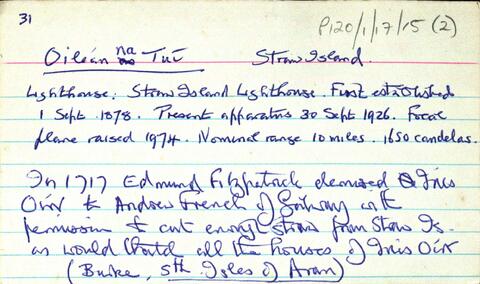 31
P120/1/17/15 (2)
Oileán na Tuí Straw Island.
Lighthouse: Straw Island Lighthouse. First established
1 Sept 1878. Present apparatus 30 Sept 1926. Focal
plane raised 1974. Nominal range 10 miles. 1650 candelas.
In 1717 Edmund Fitzpatrick demised Inis
Oírr to Andrew French of Galway with
permission to cut enough straw from Straw Is.
as would thatch all the houses of Inis Oírr
(Burke, Sth. Isles of Aran)